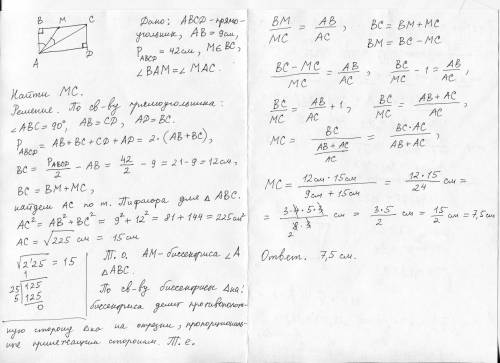 B M C
A D
Дано: ABCD - прямо-
угольник, AB = 9см,
P_ABCD = 42см, M∈BC,
∠BAM = ∠MAC.
Найти MC.
Решение. По св-ву прямоугольника:
∠ABC = 90°, AB = CD, AD = BC.
P_ABCD = AB + BC + CD + AD = 2·(AB + BC),
BC = P_ABCD/2 - AB = 42/2 - 9 = 21 - 9 = 12см,
BC = BM + MC,
найдем AC по т. Пифагора для △ABC.
AC² = AB² + BC² = 9² + 12² = 81 + 144 = 225см²
AC = √225 см = 15см
√2'25 = 15
1
25 | 125
5 | 125
0
Т.о. AM - биссектриса ∠A
△ABC.
По св-ву биссектрисы △ка:
биссектриса делит противополож-
ную сторону △ка на отрезки, пропорциональ-
ные прилежащим сторонам. Т.е.
BM/MC = AB/AC, BC = BM + MC
BM = BC - MC
(BC - MC)/MC = AB/AC, BC/MC - 1 = AB/AC,
BC/MC = AB/AC + 1, BC/MC = (AB + AC)/AC,
MC = BC/((AB + AC)/AC) = BC·AC/(AB + AC),
MC = 12см·15см/(9см + 15см) = 12·15/24 см =
= 3·4·5·3/(8·3) см = 3·5/2 см = 15/2 см = 7,5см
2
Ответ. 7,5см.